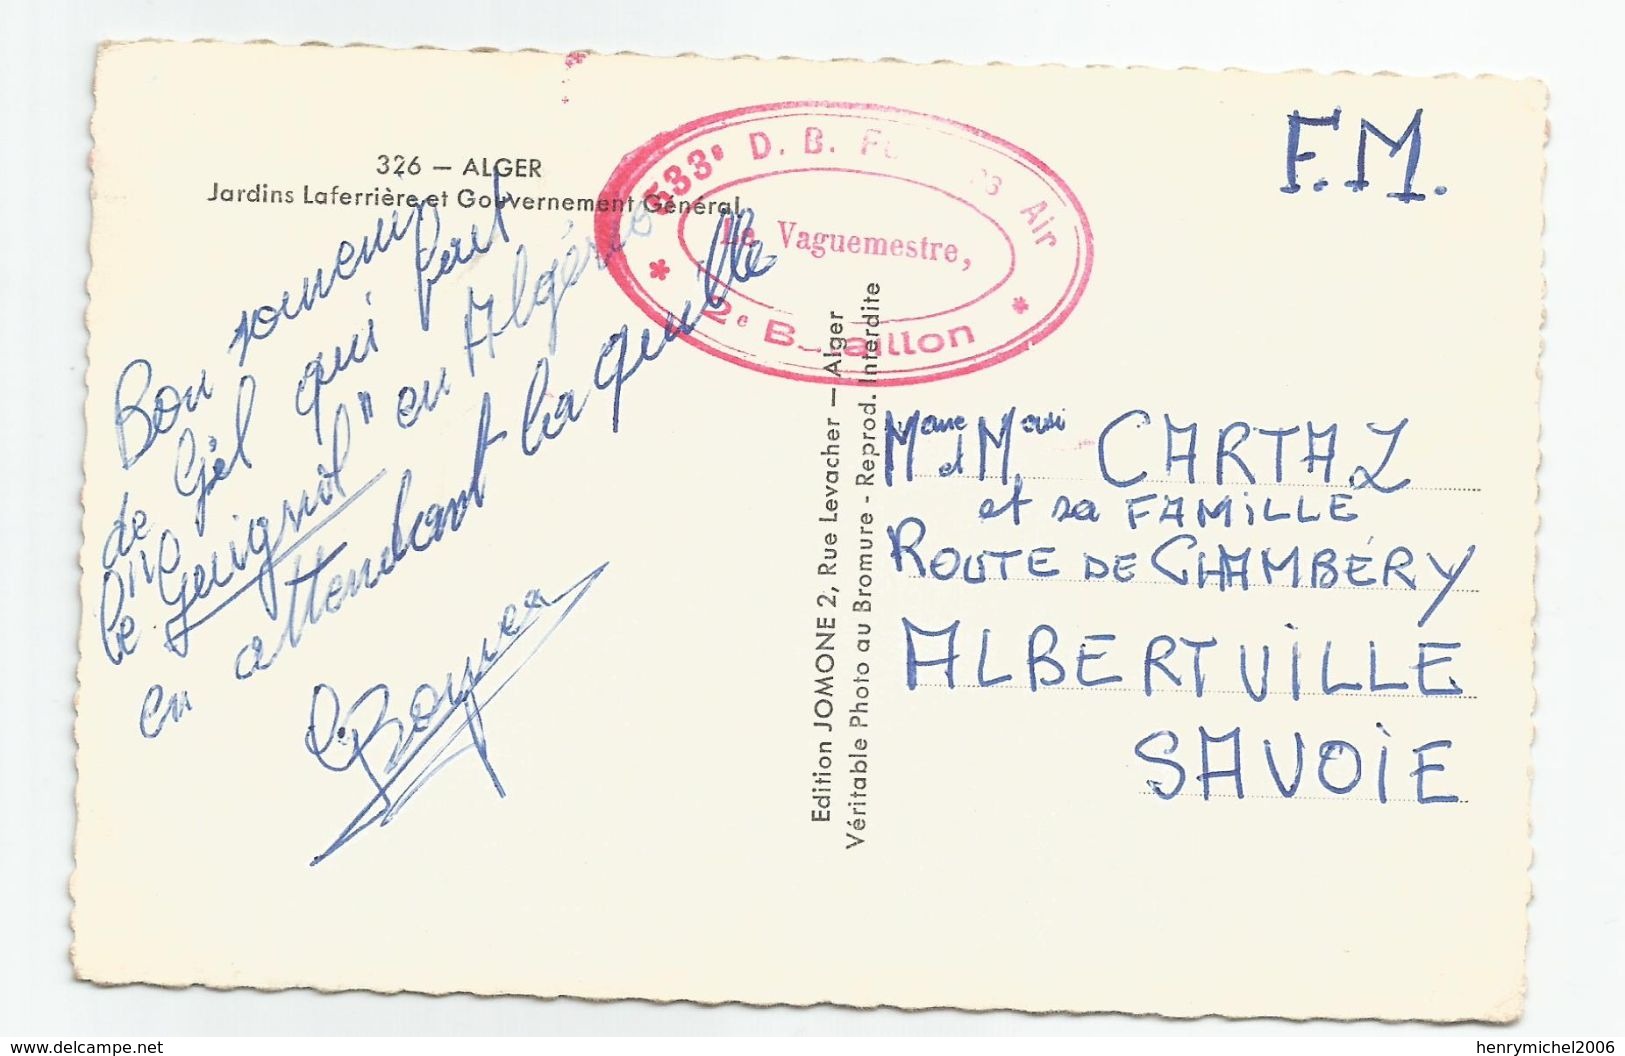 326 — ALGER
Jardins Laferrière et Gouvernement Général
Bon
de Gel qui fait
le Guignol" en Algérie
en attendant la quille
533e D. B. Air
Le Vaguemestre,
2e B aillon
F.M.
Edition JOMONE 2, Rue Levacher — Alger
Véritable Photo au Bromure - Reprod. Interdite
Mme et M. CARTAZ
et sa FAMILLE
ROUTE DE CHAMBÉRY
ALBERTVILLE
SAVOIE
www.delcampe.net
henrymichel2006